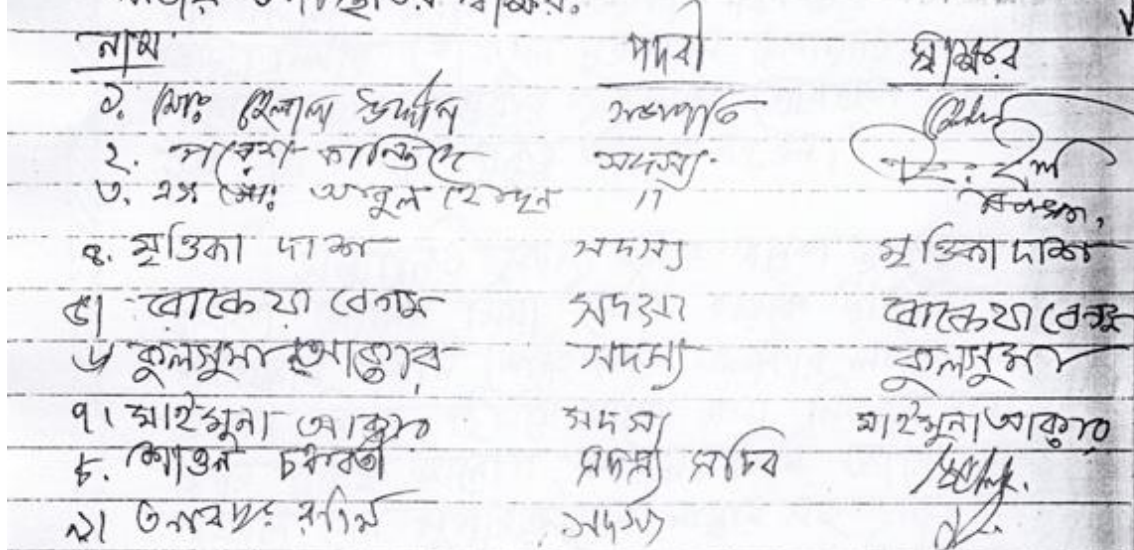 নাম পদবী স্বাক্ষর
১. মোঃ হেলাল উদ্দীন সভাপতি
২. পরেশ কান্তি দে সদস্য.
৩. এস মোঃ আবুল হোসেন ''
৪. মৃত্তিকা দাশ সদস্য মৃত্তিকা দাশ
৫। রোকেয়া বেগম সদস্যা রোকেয়া বেগম
৬ কুলসুমা আক্তার সদস্য কুলসুমা
৭। মাইমুনা আক্তার সদস্য মাইমুনা আক্তার
৮. চক্রবর্তী সদস্য সচিব
৯। সদস্য